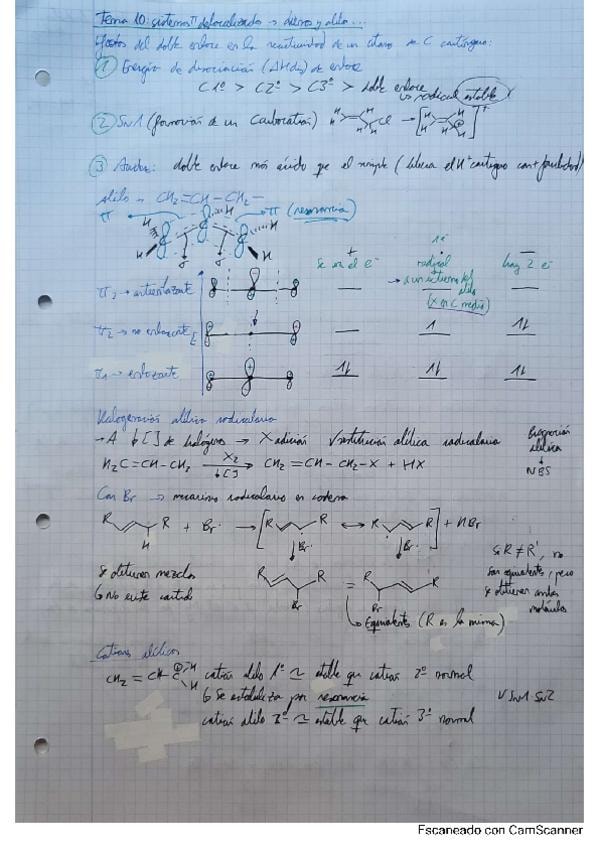 Tema 10: sistemas π deslocalizado → dienos y alilo...
Efectos del doble enlace en la reactividad de un átomo de C contiguo:
① Energía de disociación (ΔHdis) de enlace
C1º > C2º > C3º > doble enlace
↳ radical estable
② SN1 (formación de un Carbocatión)
H H H Cl → [H H H ⊕]⁺
③ Acidez: doble enlace más ácido que el simple (libera el H⁺ contiguo con + facilidad)
alilo → CH₂=CH-CH₂-
π π (resonancia)
H H H H H
σ σ
se va el e⁻ + radical 1e⁻ hay 2 e⁻ –
π₃ → antienlazante
(X en C medio)
π₂ → no enlazante 1 1↓
π₁ → enlazante 1↓ 1↓ 1↓
Halogenación alílica radicalaria
→ A ↓[ ] de halógeno → X adición ✓ sustitución alílica radicalaria
H₂C=CH-CH₃ X₂ ↓[ ] → CH₂=CH-CH₂-X + HX
Bromación alílica
↓
NBS
Con Br → mecanismo radicalario en cadena
R R H + Br· → [R · R ↔ R · R] + HBr
↓Br· ↓Br·
Se obtienen mezclas
↳ No existe
R R Br = R R Br
↳ Equivalentes (R es la misma)
Si R ≠ R', no
son equivalentes, pero
se obtienen ambas
moléculas
Cationes alílicos
CH₂=CH-C⊕ H H catión alilo 1º ≃ estable que catión 2º normal
↳ Se estabiliza por resonancia
catión alilo 2º ≃ estable que catión 3º normal
✓ SN1 SN2
Escaneado con CamScanner